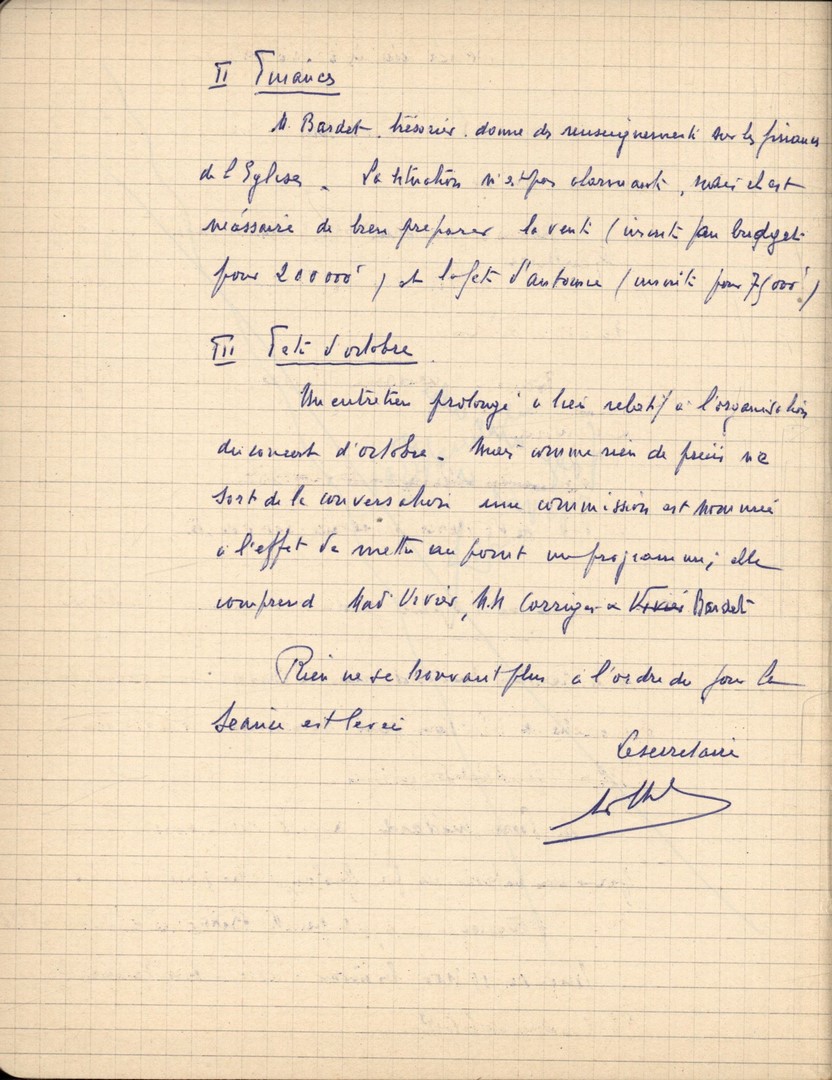 II Finances
M. Bardet, trésorier, donne des renseignements sur les finances
de l'Eglise. La situation n'est pas alarmante, mais il est
nécessaire de bien préparer la vente (inscrite au budget
pour 200000f) et la fête d'automne (inscrite pour 75000f)
III Fête d'octobre.
Un entretien prolongé a lieu relatif à l'organisation
du concert d'octobre. Mais comme rien de précis ne
sort de la conversation une commission est nommée
à l'effet de mettre au point un programme; elle
comprend Mad Vivier, M.M Corriger & Vivier Bardet
Rien ne se trouvant plus à l'ordre du jour la
séance est levée
Le secrétaire